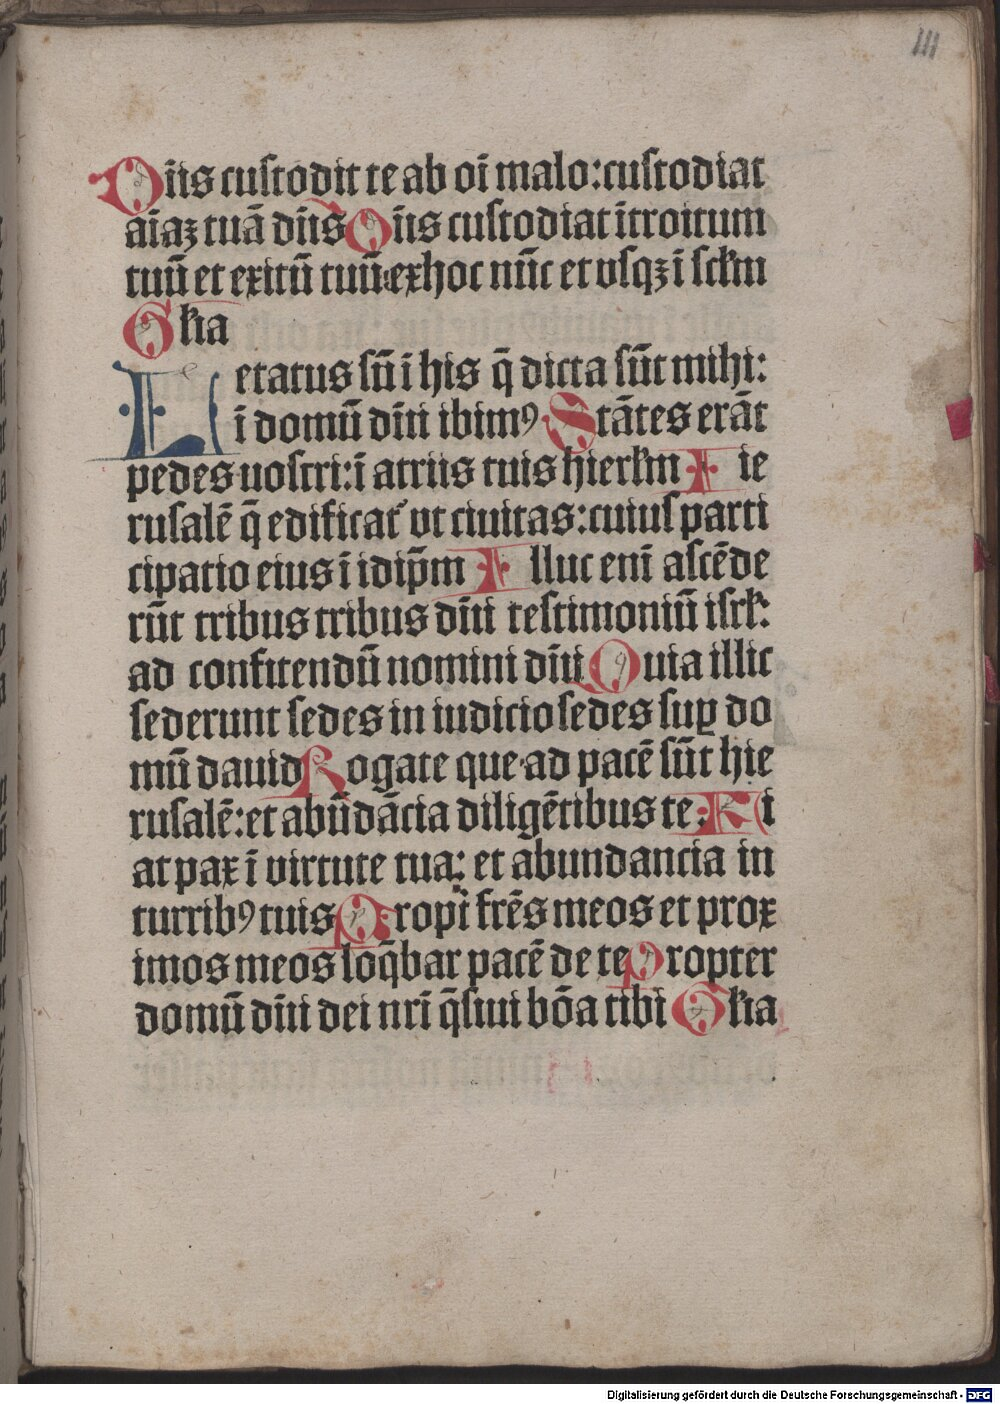 III
Dn̄s custodit te ab oī malo: custodiat
aīaꝫ tuā dn̄s Dn̄s custodiat ītroitum
tuū et exitū tuū: ex hoc nūc et vsqꝫ ī sclm
Glia
Letatus sū ī his q̄ dicta sūt mihi:
ī domū dn̄i ibimꝰ Stātes erāt
pedes nostri: ī atriis tuis hierlm Hie
rusalē q̄ edificat᷑ vt ciuitas: cuius parti
cipatio eius ī idip̄m Illuc enī ascēde
rūt tribus tribus dn̄i testimoniū isrl:
ad confitendū nomini dn̄i Quia illic
sederunt sedes in iudicio sedes suꝑ do
mū dauid Rogate que ad pacē sūt hie
rusalē: et abūdācia diligētibus te: Fi
at pax ī virtute tua: et abundancia in
turribꝰ tuis Propī frēs meos et prox
imos meos loq̄bar pacē de te Propter
domū dn̄i dei nrī q̄siui bōa tibi Glia
Digitalisierung gefördert durch die Deutsche Forschungsgemeinschaft - DFG